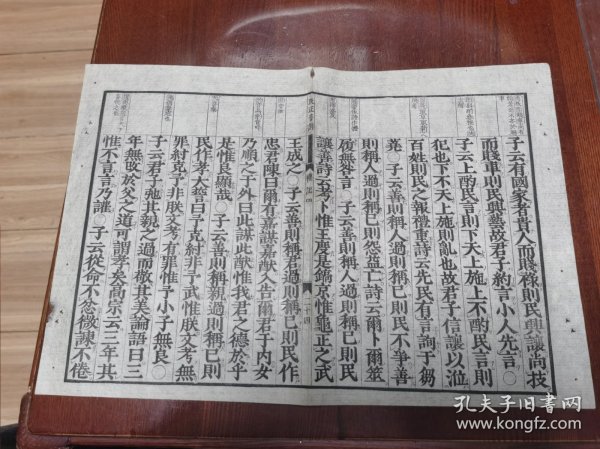 子云有國家者貴人而賤祿則民興讓尚技
而賤車則民興藝故君子約言小人先言○
子云上酌民言則下天上施上不酌民言則
犯也下不天上施則亂也故君子信讓以涖
百姓則民之報禮重詩云先民有言詢于芻
蕘○子云善則稱人過則稱己則民不爭善
則稱人過則稱己則怨益亡詩云爾卜爾筮
履無咎言○子云善則稱人過則稱己則民
讓善詩云考卜惟王度是鎬京惟龜正之武
王成之○子云善則稱君過則稱己則民作
忠君陳曰爾有嘉謀嘉猷入告爾君于内女
乃順之于外曰此謀此猷惟我君之德於乎
是惟良顯哉○子云善則稱親過則稱己則
民作孝大誓曰予克紂非予武惟朕文考無
罪紂克予非朕文考有罪惟予小子無良○
子云君子弛其親之過而敬其美論語曰三
年無改於父之道可謂孝矣高宗云三年其
惟不言言乃讙○子云從命不忿微諫不倦
孔夫子旧书网
www.kongfz.com